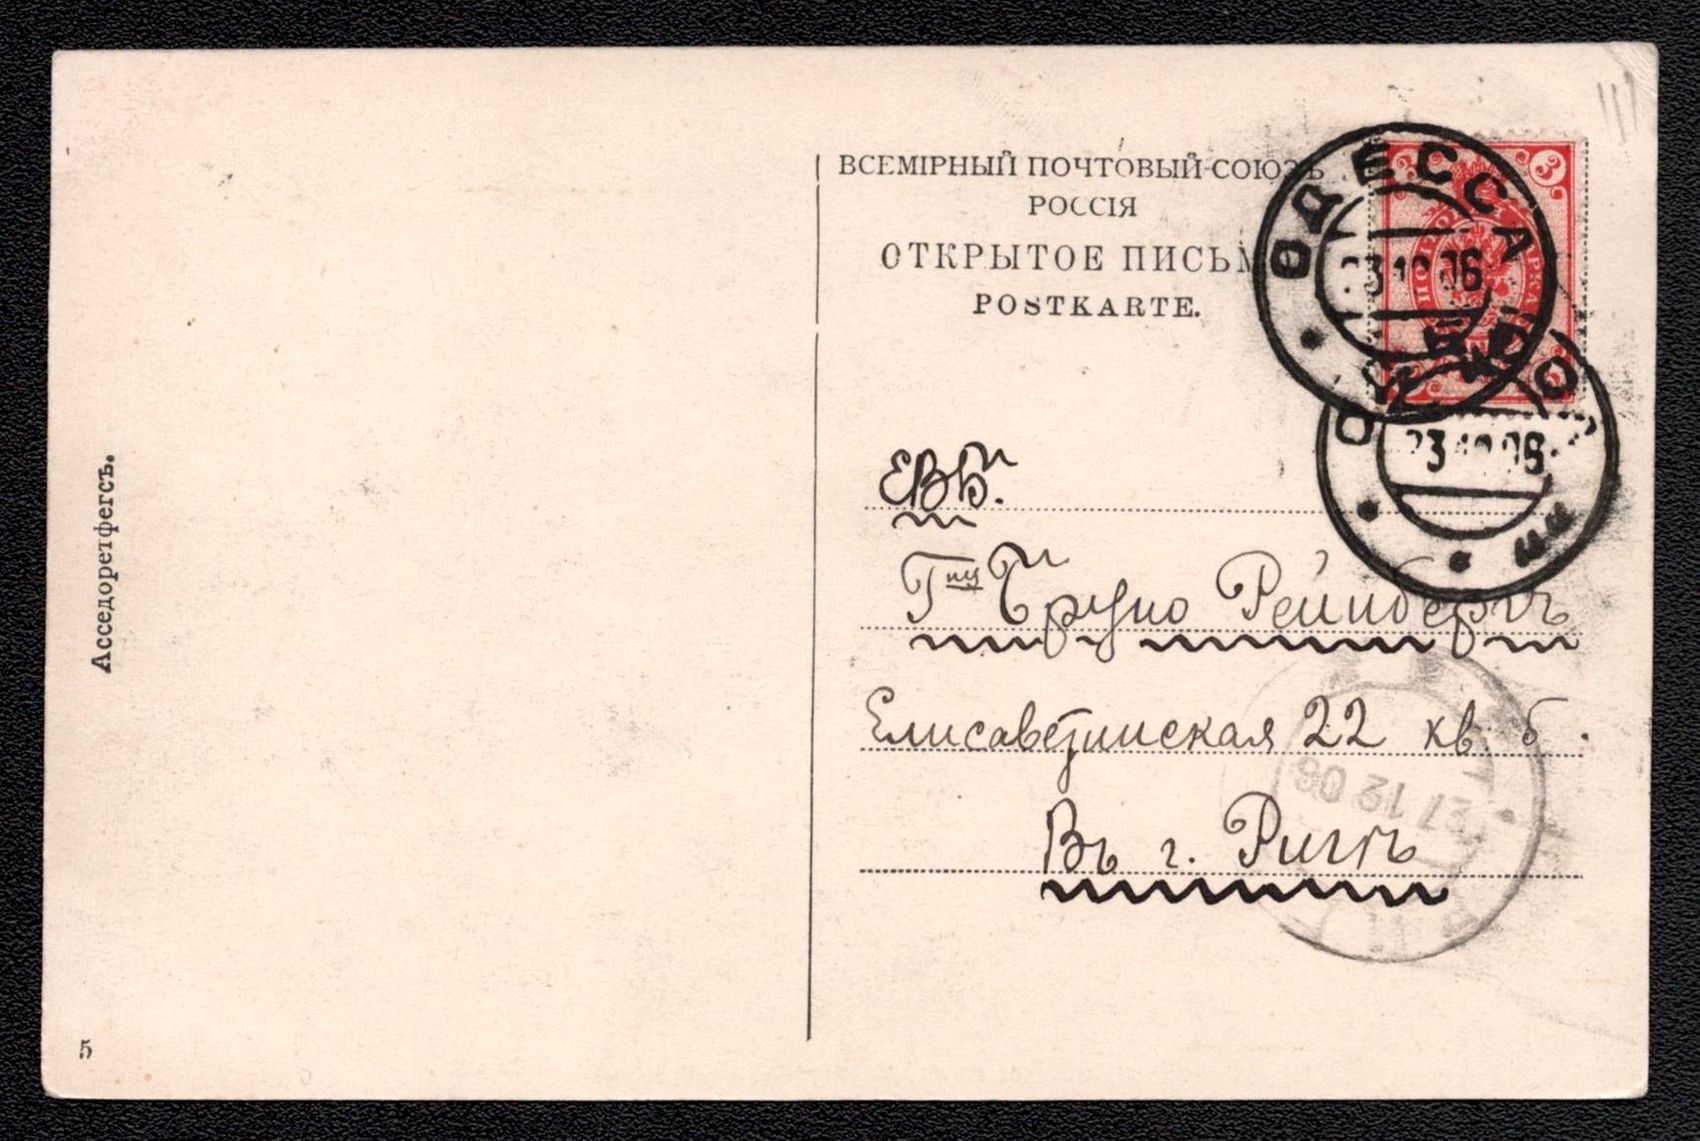 ВСЕМІРНЫЙ ПОЧТОВЫЙ СОЮЗЪ
РОССІЯ
ОТКРЫТОЕ ПИСЬМ
POSTKARTE.
ОДЕССА
23 12 06
3
23 12 06
ЕВБ.
Гну Бруно Рейнбергъ
Елисаветинская 22 кв. 5.
27 12 06
Въ г. Ригѣ
Асседоретфегсъ.
5